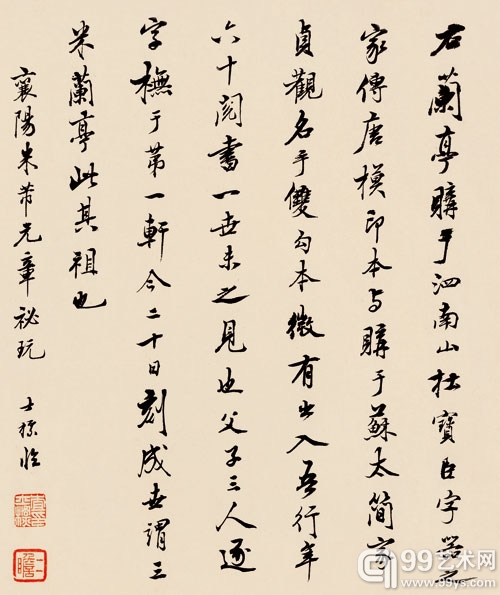 右蘭亭購于泗南山杜寶臣字器之
家傳唐模印本与購于蘇太簡家
貞觀名手雙勾本微有出入吾行年
六十閲書一世未之見也父子三人逐
字橅于第一軒今二十日刻成世謂三
米蘭亭此其祖也
襄陽米芾元章祕玩
士標臨
99艺术网
www.99ys.com